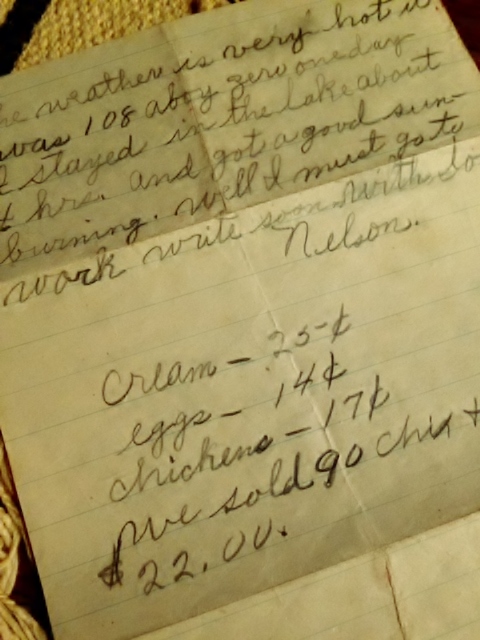 he weather is very hot it
was 108 aboy zero one day
I stayed in the lake about
4 hrs. and got a good sun-
burning. Well I must go to
work write soon with lo
Nelson.
cream - 25¢
eggs - 14¢
chickens - 17¢
we sold 90 chix +
$22.00.